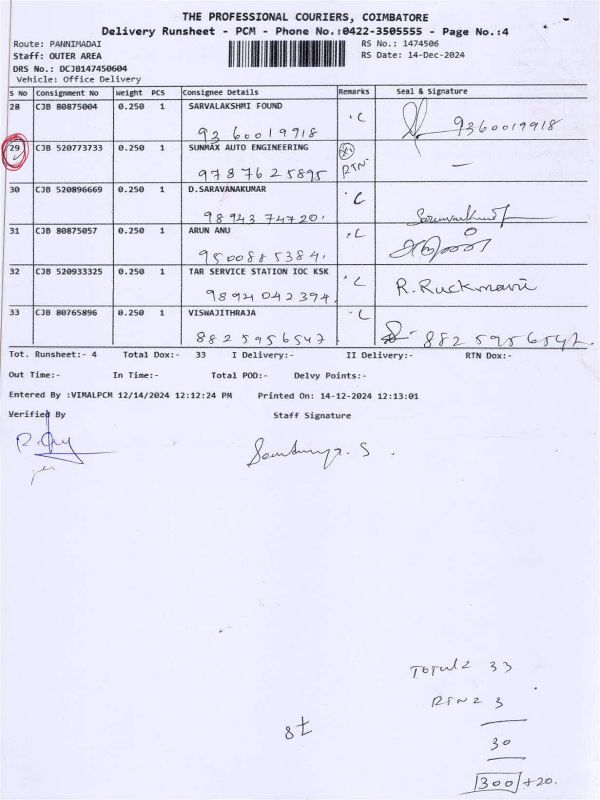 THE PROFESSIONAL COURIERS, COIMBATORE
Delivery Runsheet - PCM - Phone No.:0422-3505555 - Page No.:4
Route: PANNIMADAI RS No.: 1474506
Staff: OUTER AREA RS Date: 14-Dec-2024
DRS No.: DCJB147450604
Vehicle: Office Delivery
S No Consignment No Weight PCS Consignee Details Remarks Seal & Signature
28 CJB 80875004 0.250 1 SARVALAKSHMI FOUND
9360019918 .C 9360019918
29 CJB 520773733 0.250 1 SUNMAX AUTO ENGINEERING
9787625895 RTN -
30 CJB 520896669 0.250 1 D.SARAVANAKUMAR
9894374720. .C
31 CJB 80875057 0.250 1 ARUN ANU
9500885384. .C
32 CJB 520933325 0.250 1 TAR SERVICE STATION IOC KSK
9894042394. .C R.Ruckmani
33 CJB 80765896 0.250 1 VISWAJITHRAJA
8825956547 .C 8825956547.
Tot. Runsheet:- 4 Total Dox:- 33 I Delivery:- II Delivery:- RTN Dox:-
Out Time:- In Time:- Total POD:- Delvy Points:-
Entered By :VIMALPCM 12/14/2024 12:12:24 PM Printed On: 14-12-2024 12:13:01
Verified By Staff Signature
33
3
30
300 +20.